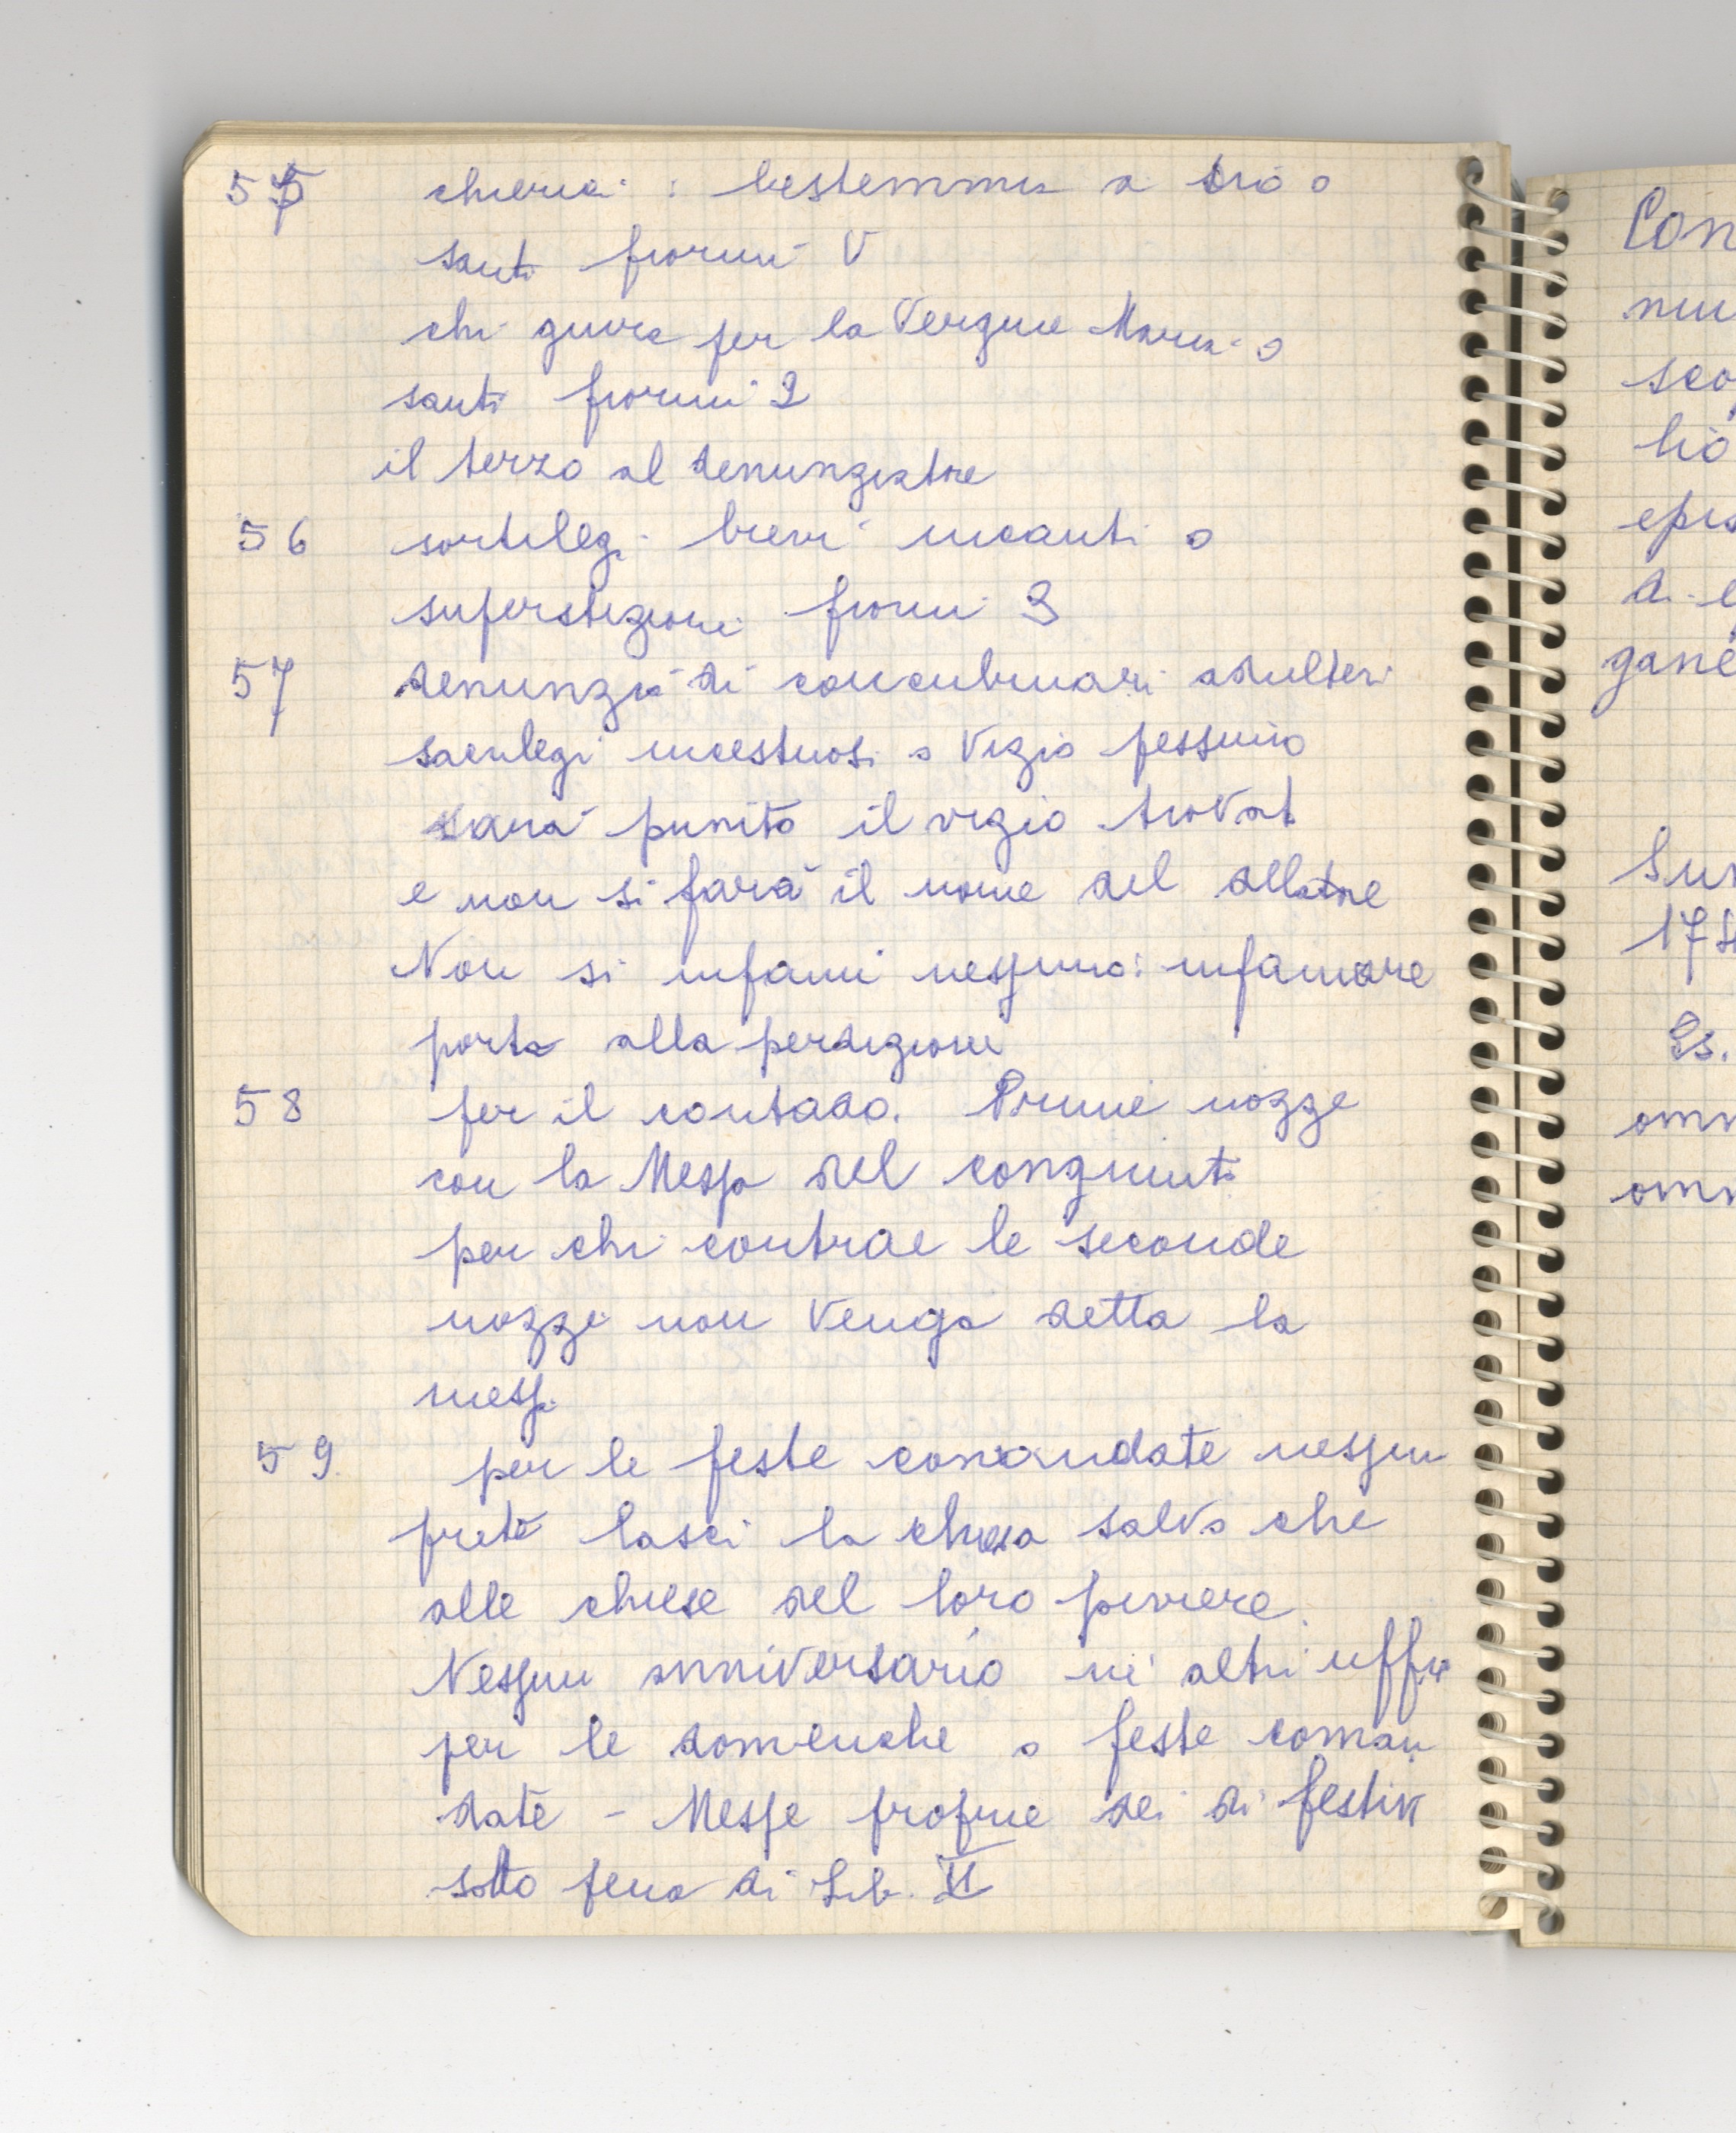 55 chierici : bestemmia a Dio o
santi fiorini V
chi giura per la Vergine Maria o
santi fiorini 2
il terzo al denunziatore
56 sortilegi brevi incanti o
superstizioni fiorini 3
57 denunzia di concubinari adulteri
sacrilegi incestuosi o vizio pessimo
sarà punito il vizio trovat
e non si farà il nome del delatore
Non si infami nessuno: infamare
porta alla perdizione
58 per il contado. Prime nozze
con la Messa del congiunti
per chi contrae le seconde
nozze non venga detta la
messa
59 per le feste comandate nessun
prete lasci la chiesa salvo che
alle chiese del loro piviere.
Nessun anniversario nè altri uffici
per le domeniche o feste coman
date - Messe proprie dei dì festivi
sotto pena di Lib. VI
Con
sco
lio
epis
di e
gane
Sun
17
Es.
omn
omn